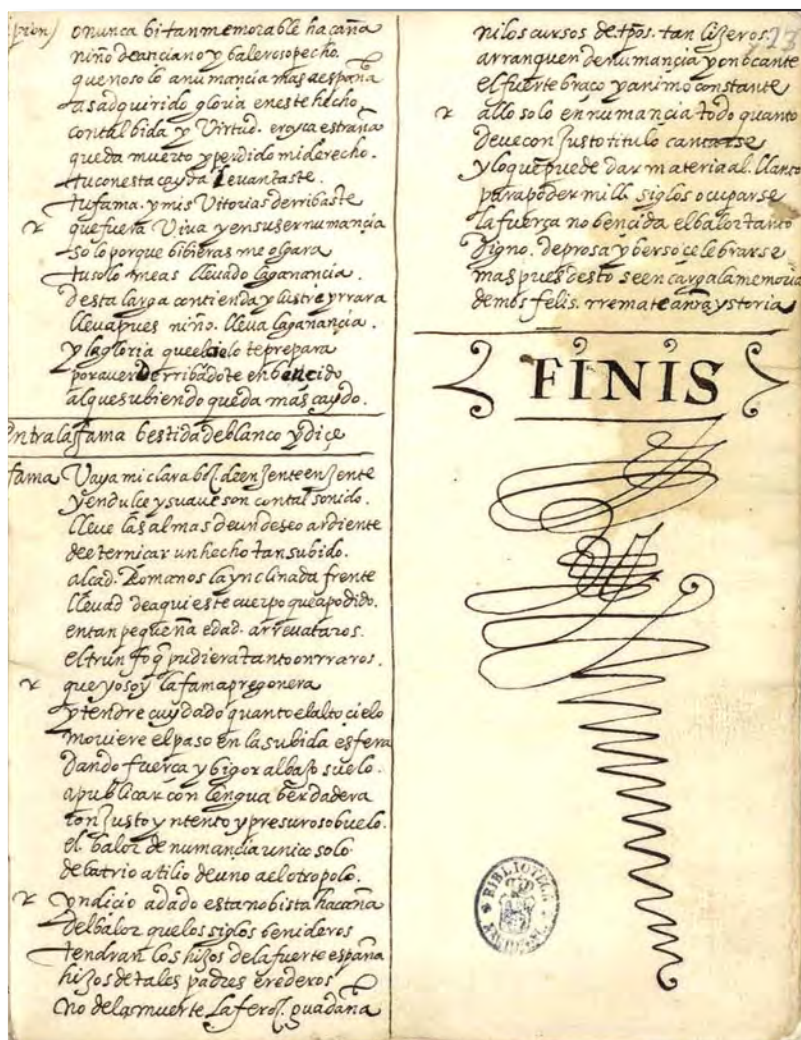 pion) o nunca bi tan memorable haçaña
niño de anciano y baleroso pecho.
que no solo a numancia mas a españa
as adquirido gloria en este hecho
con tal bida y Virtud. eroyca estraña
queda muerto y perdido mi derecho.
tu con esta cayda levantaste.
tu fama. y mis Vitorias derribaste
que fuera Viva y en su ser numancia
solo porque bibieras me olgara
tu solo meas llevado la ganancia.
desta larga contienda y lustre y rrara
lleva pues niño. lleva la ganancia.
y la gloria que el cielo te prepara
por aver derribadote en bencido
al que subiendo queda mas caydo.
entra la fama bestida de blanco y diçe
fama Vaya mi clara boz. de en jente en jente
y en dulce y suave son con tal sonido.
lleve las almas de un deseo ardiente
de eterniçar un hecho tan subido.
alcad. Romanos la ynclinada frente
llevad de aqui este cuerpo que a podido.
en tan pequeña edad. arrevataros.
el triunfo q̃ pudiera tanto onrraros.
que yo soy la fama pregonera
y tendre cuydado quanto el alto cielo
moviere el paso en la subida esfera
dando fuerça y bigor al bajo suelo.
a publicar con lengua berdadera
con justo yntento y presuroso buelo.
el balor de numancia unico solo
de batrio a tilio de uno a el otro polo.
yndicio a dado esta no bista haçaña
del balor que los siglos benideros
tendran los hijos de la fuerte españa
hijos de tales padres erederos
no de la muerte la feroz. guadaña
ni los cursos de tp̃os. tan lijeros.
arranquen de numancia yo no cante
el fuerte braço y animo constante
allo solo en numancia todo quanto
deve con justo titulo cantarse
y lo que puede dar materia al. llanto
para poder mill siglos ocuparse
la fuerça no bencida el balor tanto
digno. de prosa y berso celebrarse
mas pues desto se encarga la memoria
demos felis. rremate a nr̃a ystoria
FINIS
BIBLIOTECA NACIONAL